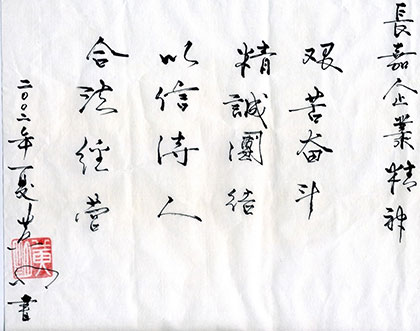 長嘉企業精神
艰苦奋斗
精誠團结
以信待人
合法经营
二〇〇二年夏
書